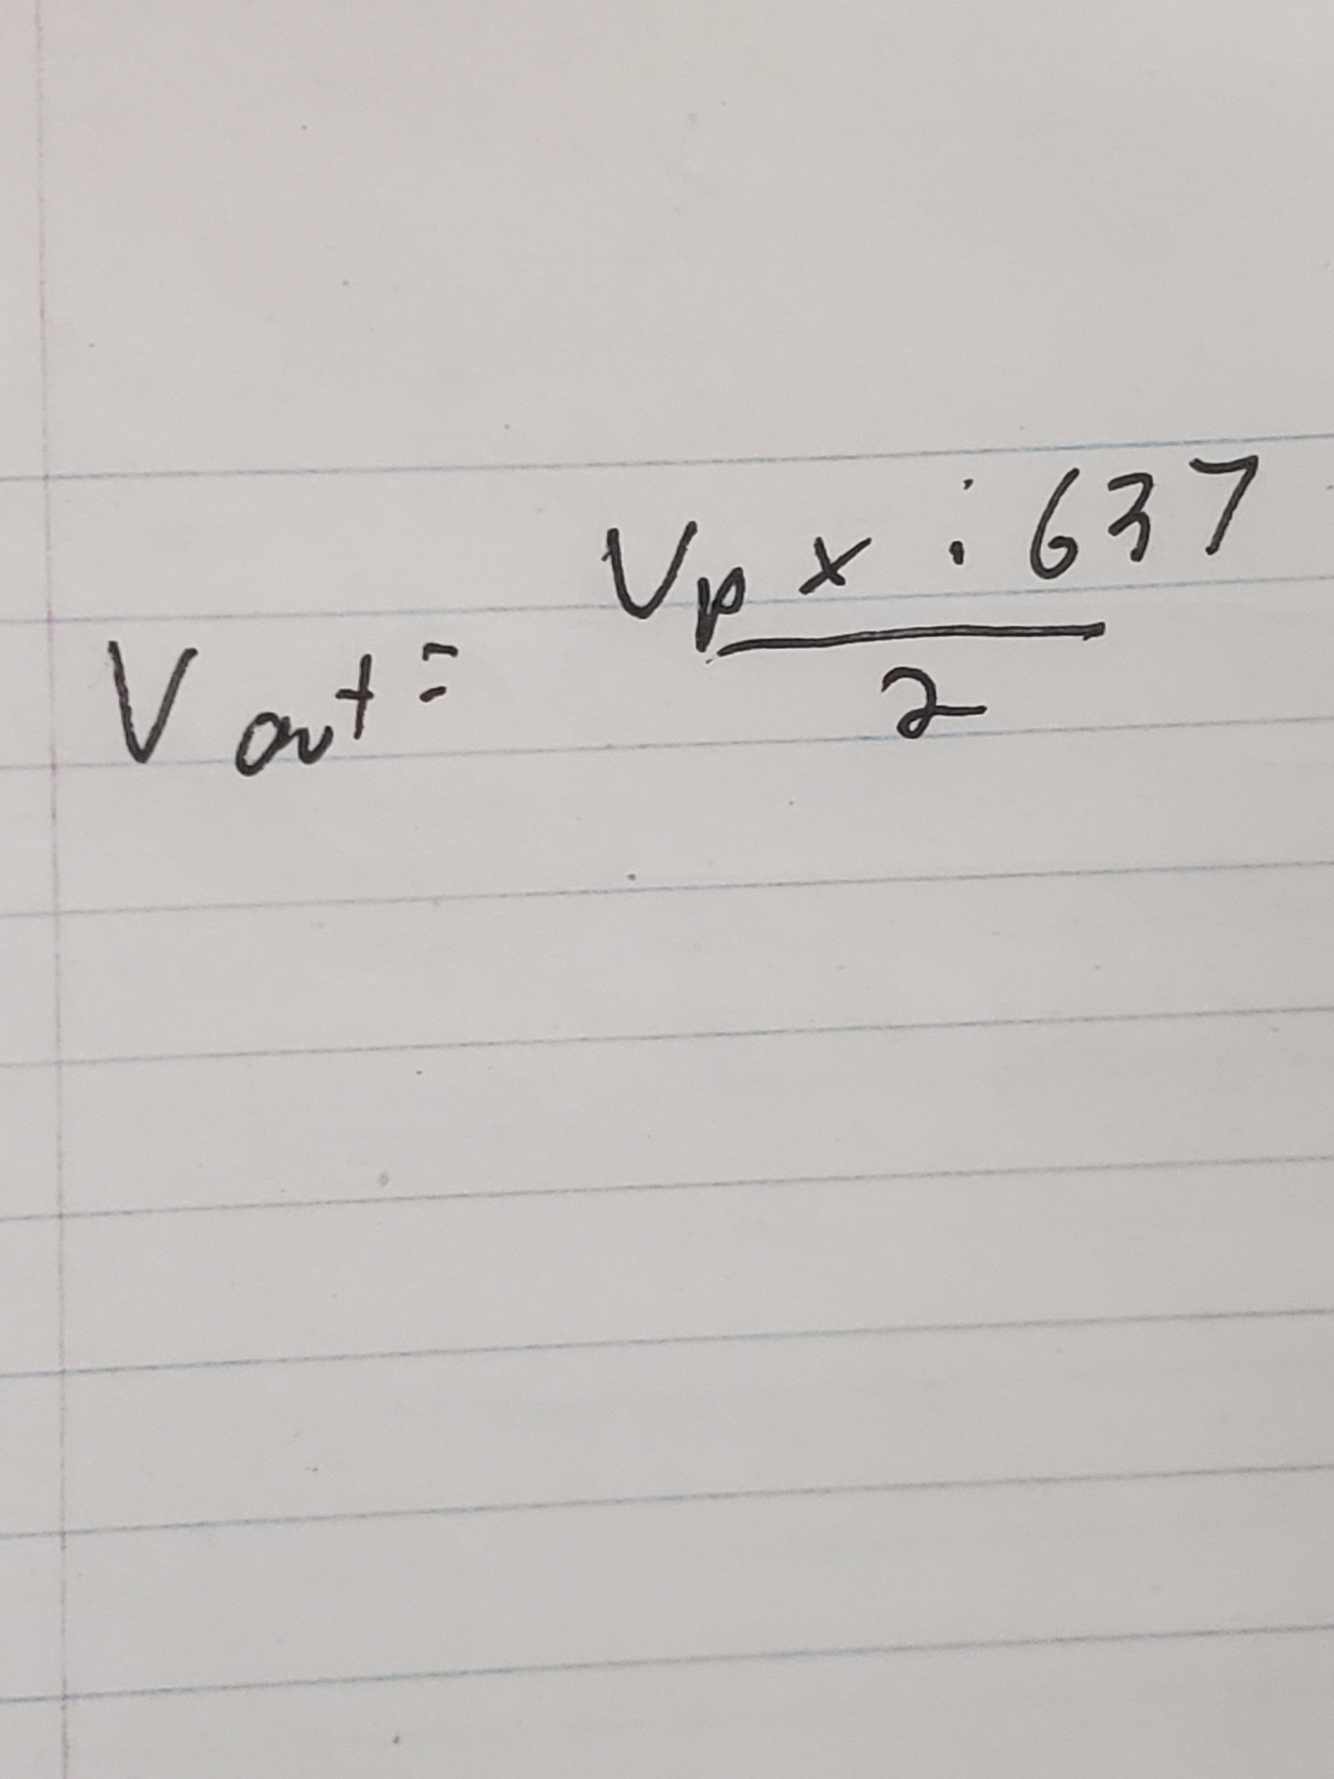 Vout = Vp x .637
2